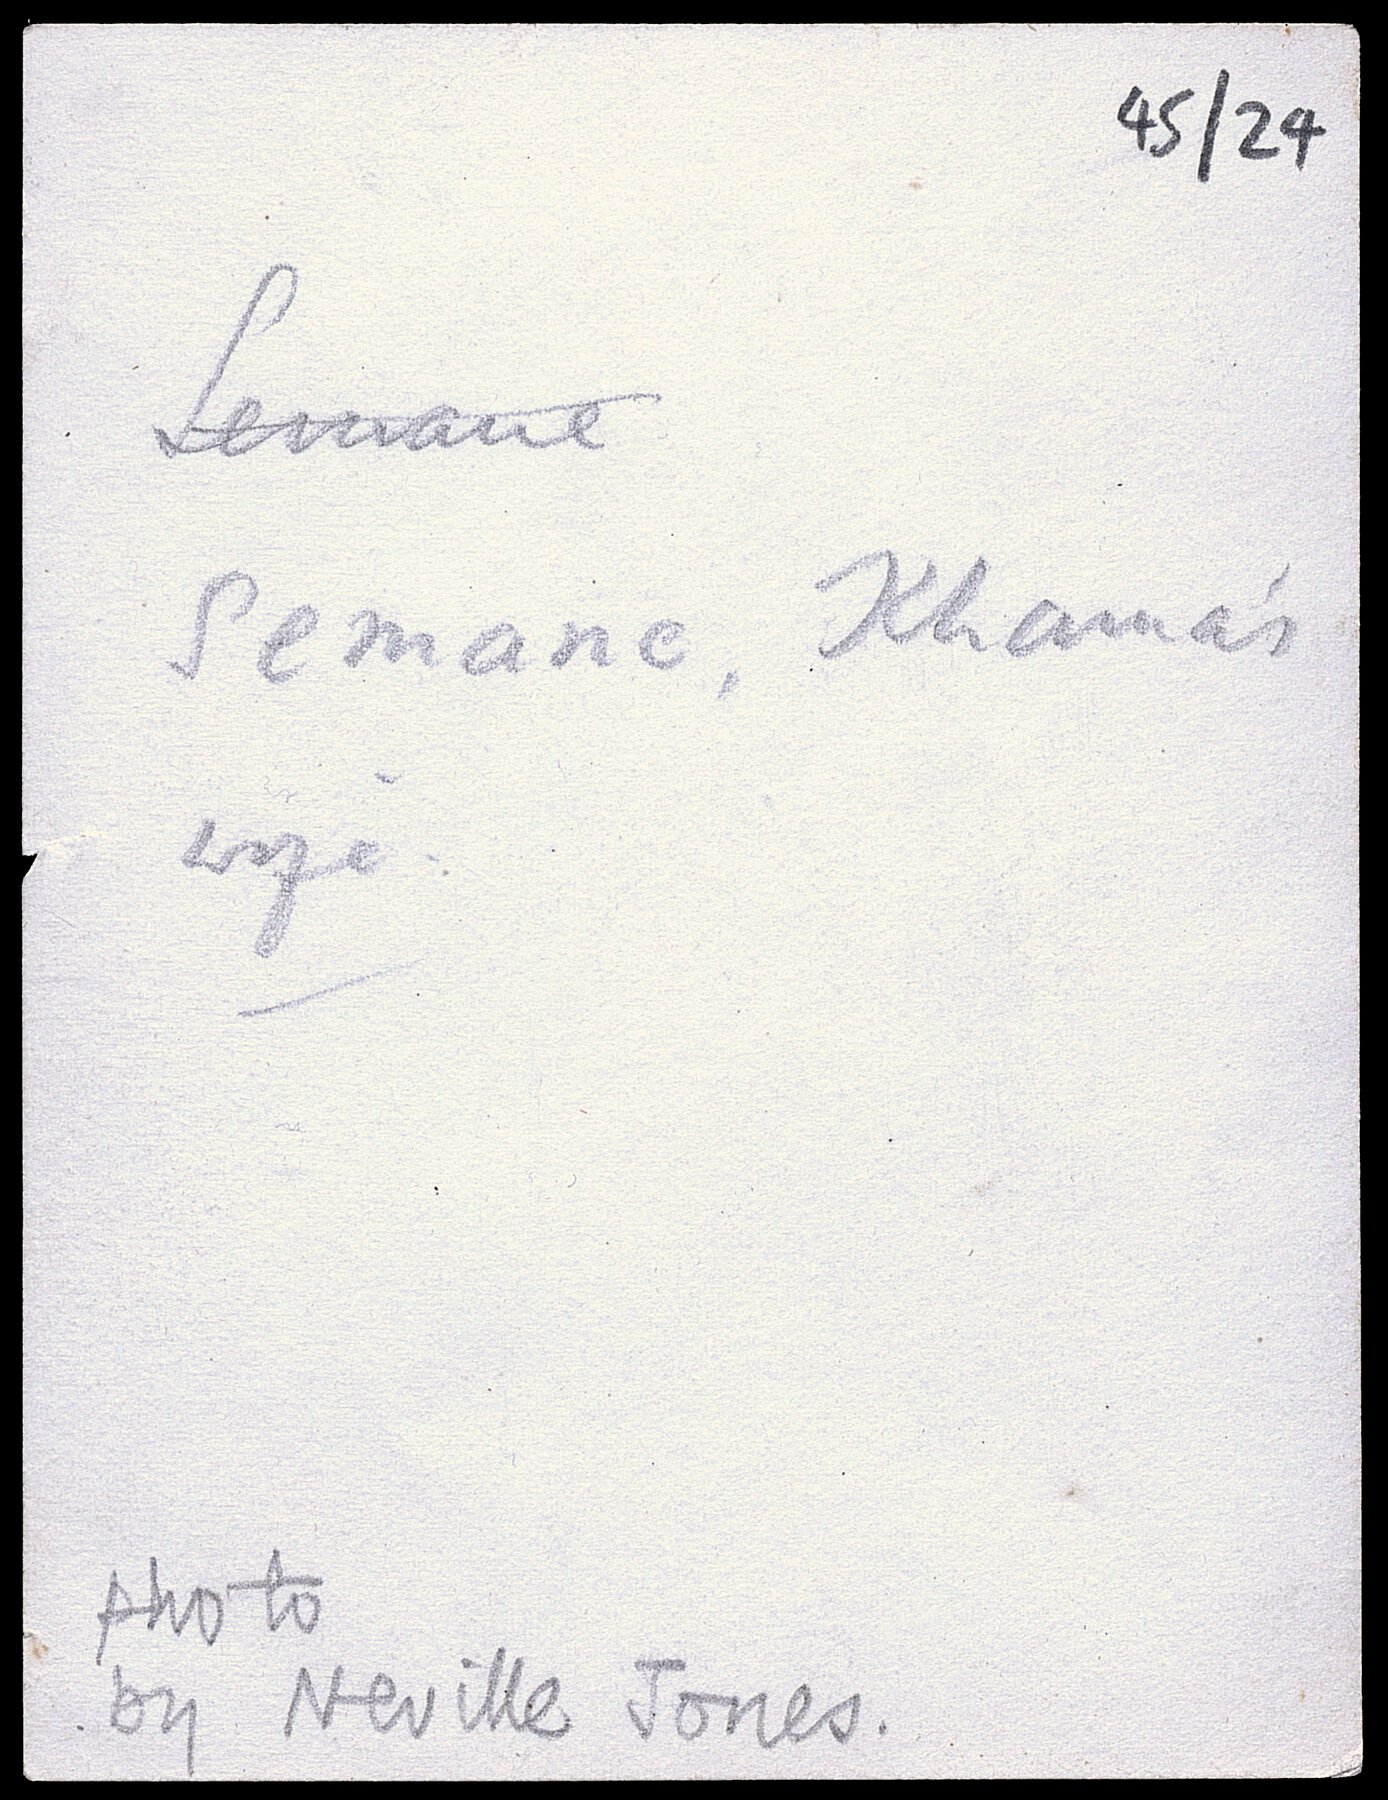 45/24
Semane
Semane, Khama's
wife
Photo
by Neville Jones.